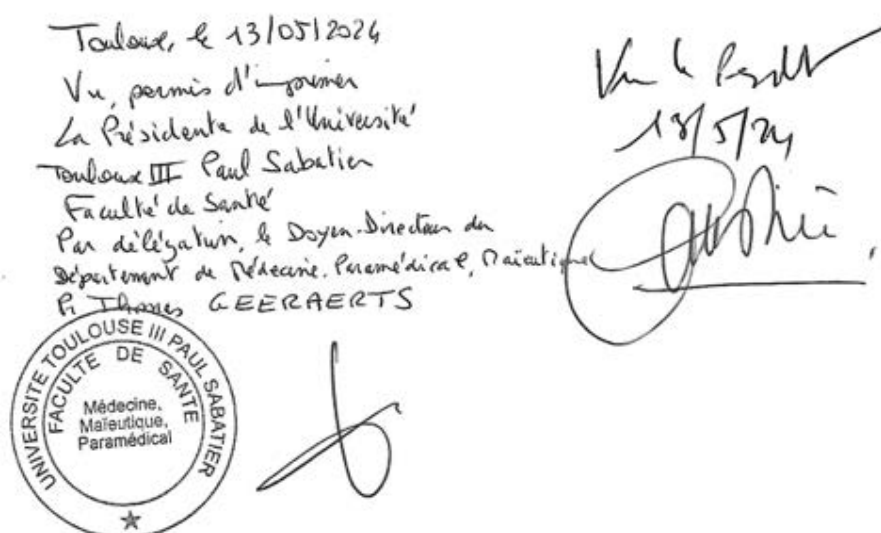 Toulouse, le 13/05/2024
Vu, permis d'imprimer
La Présidente de l'Université
Toulouse III Paul Sabatier
Faculté de Santé
Par délégation, le Doyen-Directeur du
Département de Médecine, Paramédical, Maïeutique
Pr Thomas GEERAERTS
UNIVERSITE TOULOUSE III PAUL SABATIER
FACULTE DE SANTE
Médecine,
Maïeutique,
Paramédical
Vu le
13/5/24